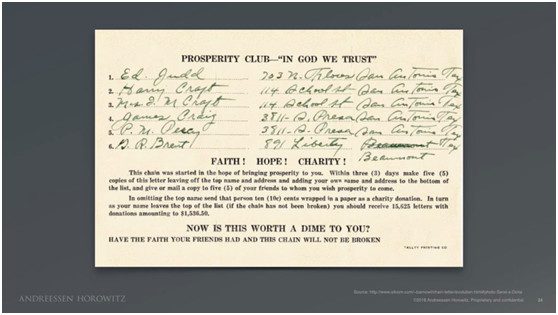 PROSPERITY CLUB—"IN GOD WE TRUST"
1. Ed. Judd 703 N. Flores San Antonio Tex
2. Harry Craft 114 School st San Antonio Tex
3. Mrs. F. M Craft 114 School St San Antonio Tex
4. James Craig 3811- S. Presa San Antonio Tex
5. P. M. 3811- S. Presa San Antonio Tex
6. B. R. Brent 891 Liberty Beaumont Tex
Beaumont
FAITH! HOPE! CHARITY!
This chain was started in the hope of bringing prosperity to you. Within three (3) days make five (5)
copies of this letter leaving off the top name and address and adding your own name and address to the bottom of
the list, and give or mail a copy to five (5) of your friends to whom you wish prosperity to come.
In omitting the top name send that person ten (10c) cents wrapped in a paper as a charity donation. In turn
as your name leaves the top of the list (if the chain has not been broken) you should receive 15,625 letters with
donations amounting to $1,536.50.
NOW IS THIS WORTH A DIME TO YOU?
HAVE THE FAITH YOUR FRIENDS HAD AND THIS CHAIN WILL NOT BE BROKEN
PRINTING CO
ANDREESSEN HOROWITZ
©2018 Andreessen Horowitz. Proprietary and confidential
24